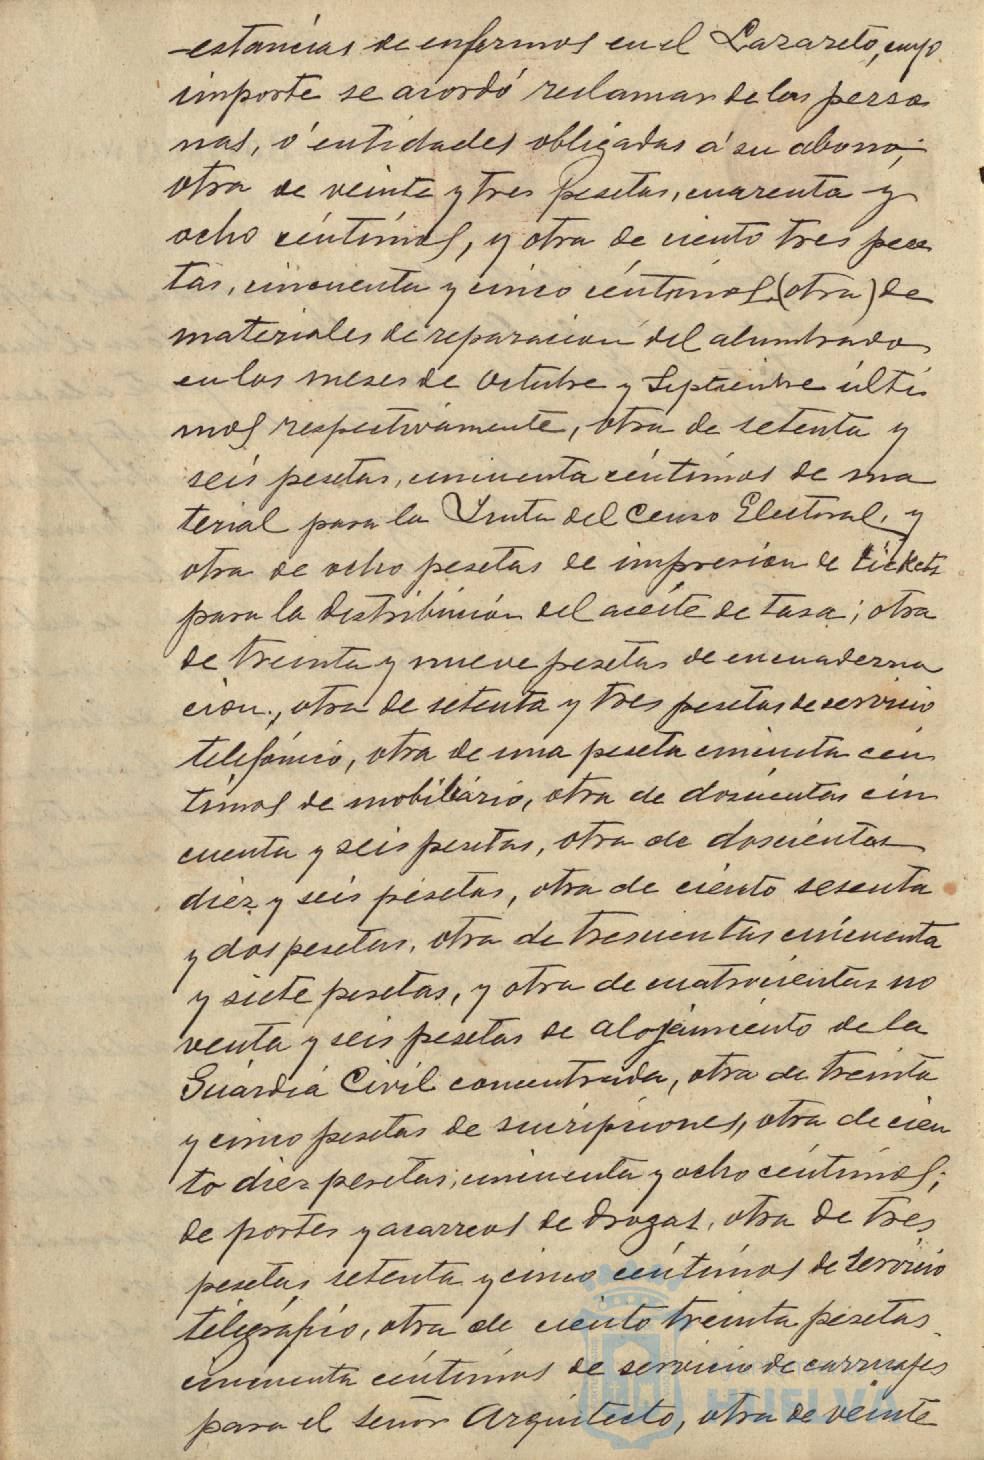 estancias de enfermos en el Lazareto, cuyo
importe se acordó reclamar de las perso
nas, ó entidades obligadas á su abono;
otra de veinte y tres pesetas, cuarenta y
ocho céntimos, y otra de ciento tres pese
tas, cincuenta y cinco céntimos (otra) de
materiales de reparacion del alumbrado
en los meses de Octubre y Septiembre últi
mos respectivamente, otra de setenta y
seis pesetas, cincuenta céntimos de ma
terial para la Junta del Censo Electoral, y
otra de ocho pesetas de impresion de tickets
para la distribución del aceite de tasa; otra
de treinta y nueve pesetas de encuaderna
cion., otra de setenta y tres pesetas de servicio
telefónico, otra de una peseta cincuenta cén
timos de mobiliario, otra de doscientas cin
cuenta y seis pesetas, otra de doscientas
diez y seis pesetas, otra de ciento sesenta
y dos pesetas, otra de trescientas cincuenta
y siete pesetas, y otra de cuatrocientas no
venta y seis pesetas de alojamiento de la
Guardia Civil concentrada, otra de treinta
y cinco pesetas de suscripciones, otra de cien
to diez pesetas, cincuenta y ocho céntimos;
de portes y acarreos de drogas, otra de tres
pesetas setenta y cinco céntimos de servicio
telegráfico, otra de ciento treinta pesetas
cincuenta céntimos de servicio de carruajes
para el señor Arquitecto, otra de veinte
HUELVA